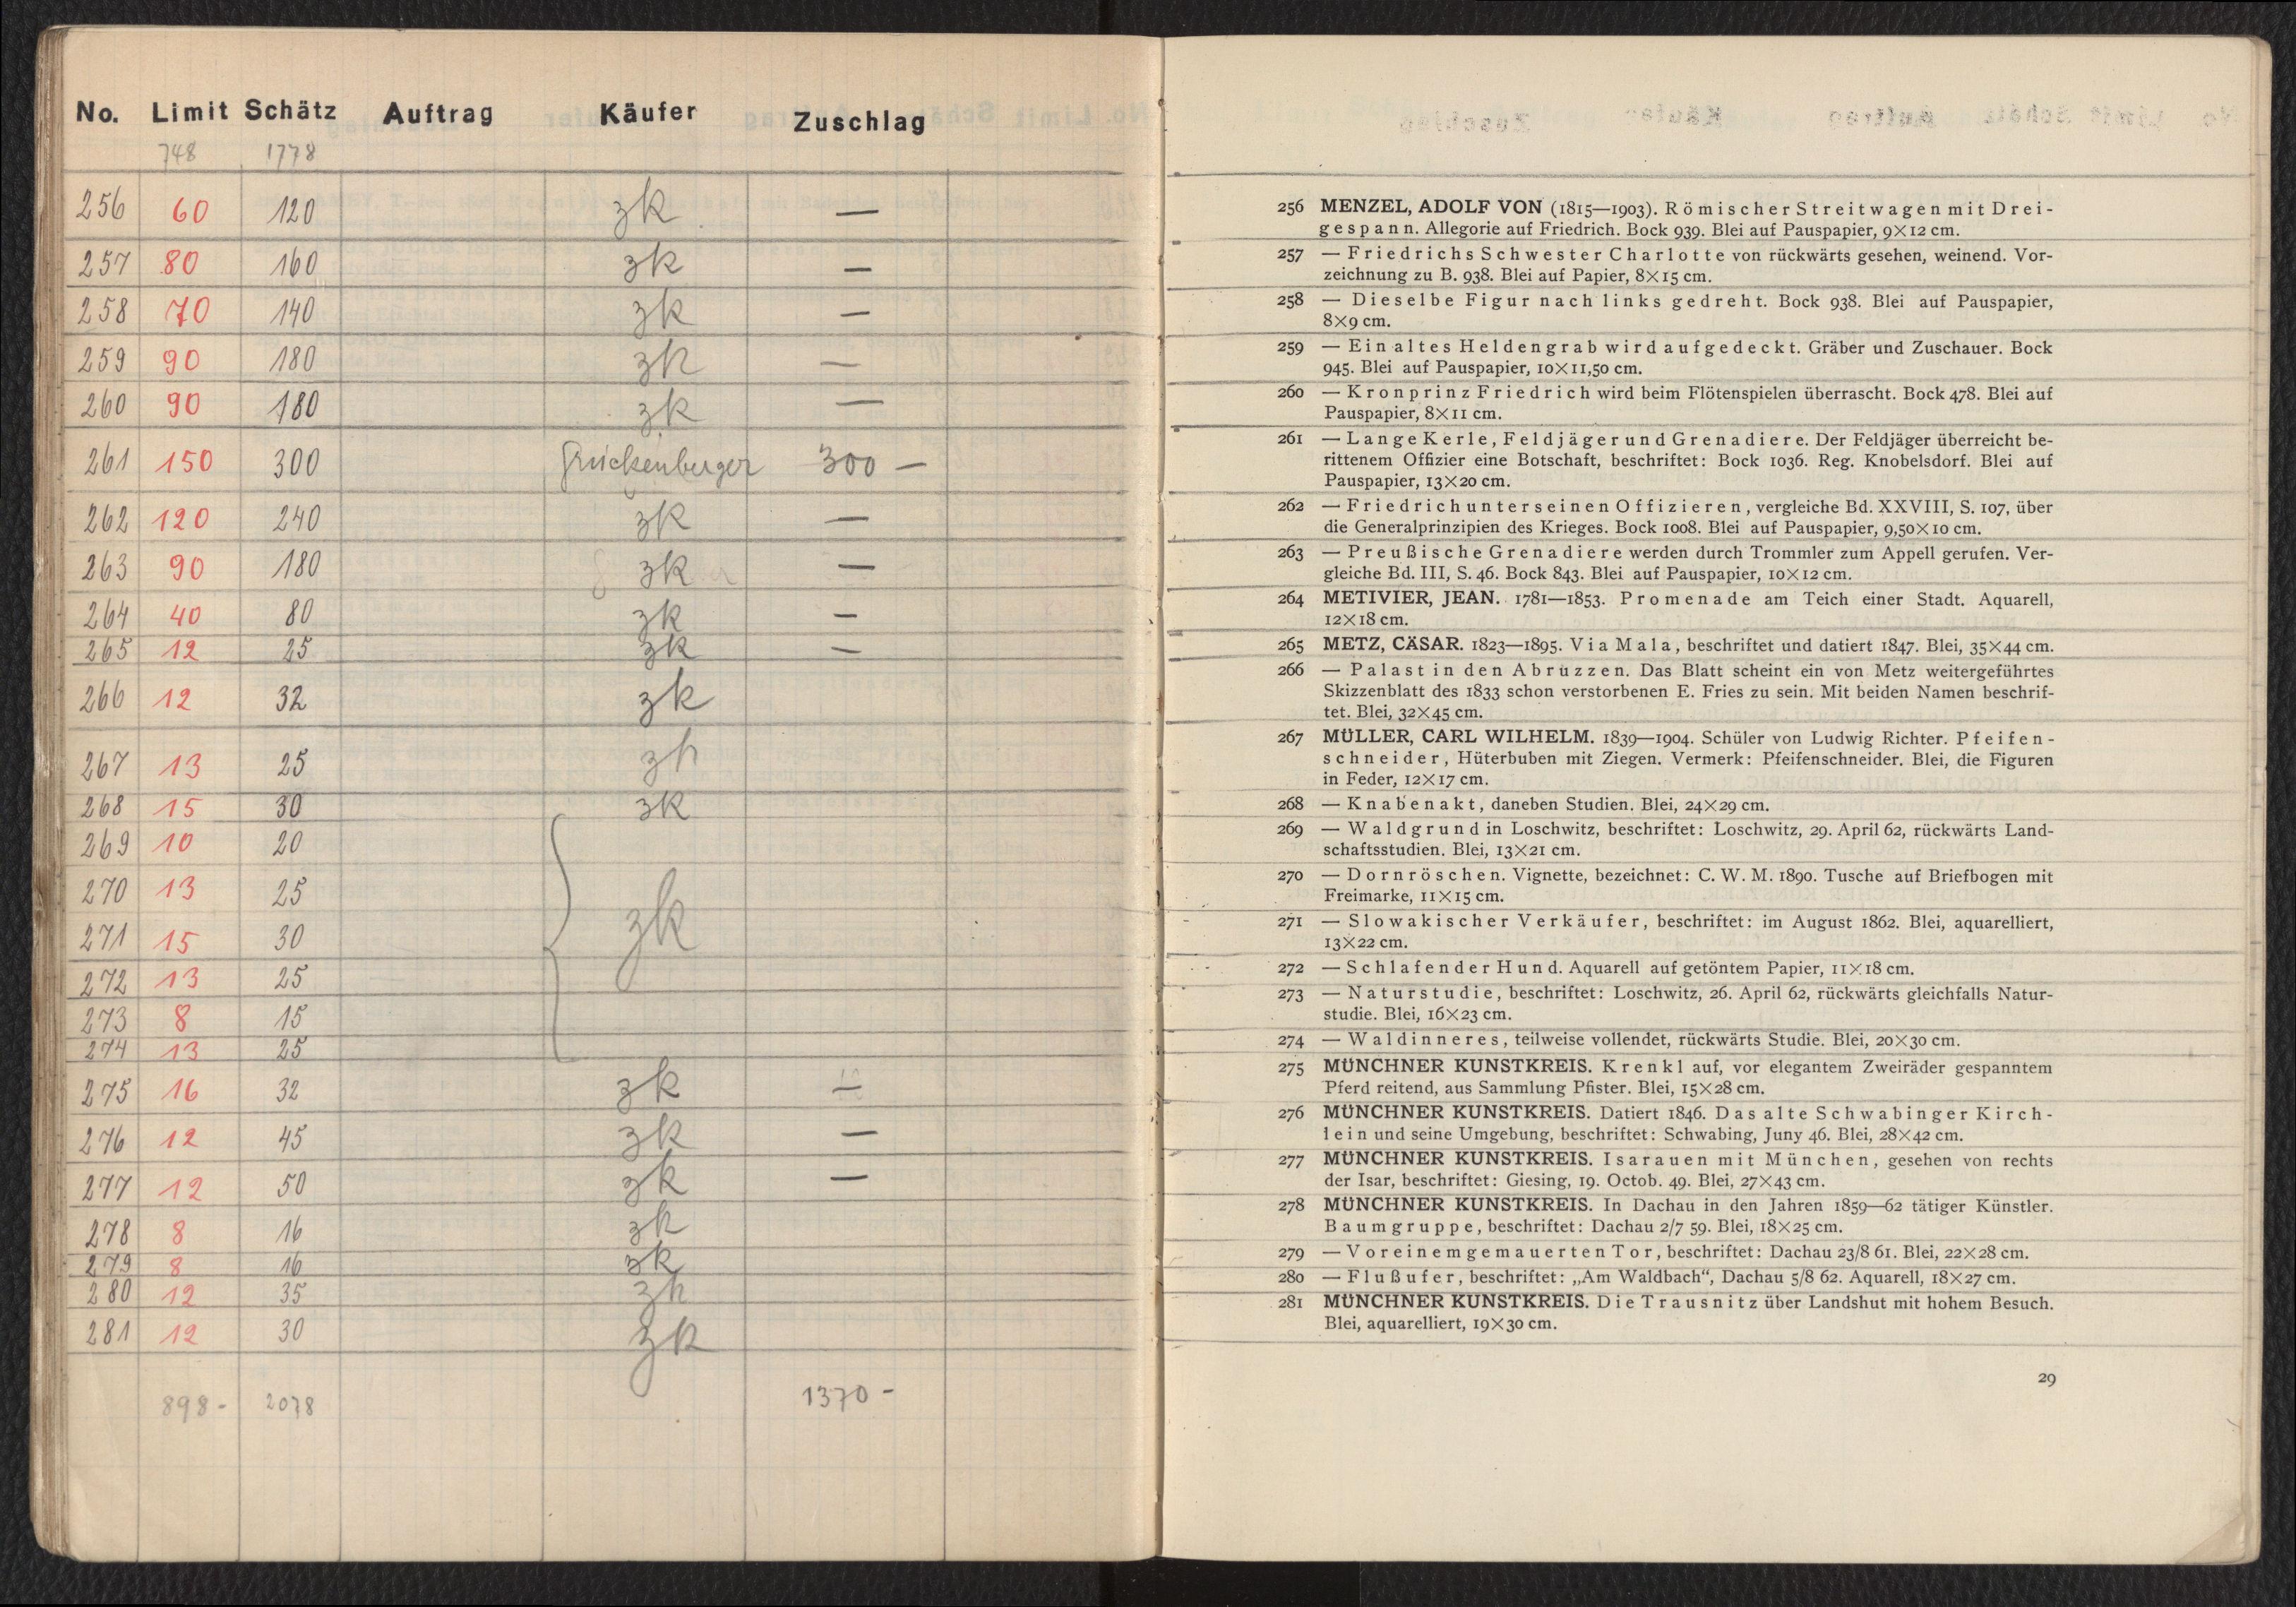 No. Limit Schätz Auftrag Käufer Zuschlag
748 1778
256 60 120 zk —
257 80 160 zk —
258 70 140 zk —
259 90 180 zk —
260 90 180 zk —
261 150 300 300 —
262 120 240 zk —
263 90 180 zk —
264 40 80 zk —
265 12 25 zk —
266 12 32 zk
267 13 25 zk
268 15 30 zk
269 10 20
270 13 25
271 15 30 zk
272 13 25
273 8 15
274 13 25
275 16 32 zk —
276 12 45 zk —
277 12 50 zk —
278 8 16 zk
279 8 16 zk
280 12 35 zk
281 12 30 zk
898- 2078 1370 -
256 MENZEL, ADOLF VON (1815—1903). Römischer Streitwagen mit Drei-
gespann. Allegorie auf Friedrich. Bock 939. Blei auf Pauspapier, 9×12 cm.
257 — Friedrichs Schwester Charlotte von rückwärts gesehen, weinend. Vor-
zeichnung zu B. 938. Blei auf Papier, 8×15 cm.
258 — Dieselbe Figur nach links gedreht. Bock 938. Blei auf Pauspapier,
8×9 cm.
259 — Ein altes Heldengrab wird aufgedeckt. Gräber und Zuschauer. Bock
945. Blei auf Pauspapier, 10×11,50 cm.
260 — Kronprinz Friedrich wird beim Flötenspielen überrascht. Bock 478. Blei auf
Pauspapier, 8×11 cm.
261 — Lange Kerle, Feldjäger und Grenadiere. Der Feldjäger überreicht be-
rittenem Offizier eine Botschaft, beschriftet: Bock 1036. Reg. Knobelsdorf. Blei auf
Pauspapier, 13×20 cm.
262 — Friedrich unter seinen Offizieren, vergleiche Bd. XXVIII, S. 107, über
die Generalprinzipien des Krieges. Bock 1008. Blei auf Pauspapier, 9,50×10 cm.
263 — Preußische Grenadiere werden durch Trommler zum Appell gerufen. Ver-
gleiche Bd. III, S. 46. Bock 843. Blei auf Pauspapier, 10×12 cm.
264 METIVIER, JEAN. 1781—1853. Promenade am Teich einer Stadt. Aquarell,
12×18 cm.
265 METZ, CÄSAR. 1823—1895. Via Mala, beschriftet und datiert 1847. Blei, 35×44 cm.
266 — Palast in den Abruzzen. Das Blatt scheint ein von Metz weitergeführtes
Skizzenblatt des 1833 schon verstorbenen E. Fries zu sein. Mit beiden Namen beschrif-
tet. Blei, 32×45 cm.
267 MÜLLER, CARL WILHELM. 1839—1904. Schüler von Ludwig Richter. Pfeifen-
schneider, Hüterbuben mit Ziegen. Vermerk: Pfeifenschneider. Blei, die Figuren
in Feder, 12×17 cm.
268 — Knabenakt, daneben Studien. Blei, 24×29 cm.
269 — Waldgrund in Loschwitz, beschriftet: Loschwitz, 29. April 62, rückwärts Land-
schaftsstudien. Blei, 13×21 cm.
270 — Dornröschen. Vignette, bezeichnet: C. W. M. 1890. Tusche auf Briefbogen mit
Freimarke, 11×15 cm.
271 — Slowakischer Verkäufer, beschriftet: im August 1862. Blei, aquarelliert,
13×22 cm.
272 — Schlafender Hund. Aquarell auf getöntem Papier, 11×18 cm.
273 — Naturstudie, beschriftet: Loschwitz, 26. April 62, rückwärts gleichfalls Natur-
studie. Blei, 16×23 cm.
274 — Waldinneres, teilweise vollendet, rückwärts Studie. Blei, 20×30 cm.
275 MÜNCHNER KUNSTKREIS. Krenkl auf, vor elegantem Zweiräder gespanntem
Pferd reitend, aus Sammlung Pfister. Blei, 15×28 cm.
276 MÜNCHNER KUNSTKREIS. Datiert 1846. Das alte Schwabinger Kirch-
lein und seine Umgebung, beschriftet: Schwabing, Juny 46. Blei, 28×42 cm.
277 MÜNCHNER KUNSTKREIS. Isarauen mit München, gesehen von rechts
der Isar, beschriftet: Giesing, 19. Octob. 49. Blei, 27×43 cm.
278 MÜNCHNER KUNSTKREIS. In Dachau in den Jahren 1859—62 tätiger Künstler.
Baumgruppe, beschriftet: Dachau 2/7 59. Blei, 18×25 cm.
279 — Vor einem gemauerten Tor, beschriftet: Dachau 23/8 61. Blei, 22×28 cm.
280 — Flußufer, beschriftet: „Am Waldbach“, Dachau 5/8 62. Aquarell, 18×27 cm.
281 MÜNCHNER KUNSTKREIS. Die Trausnitz über Landshut mit hohem Besuch.
Blei, aquarelliert, 19×30 cm.
29